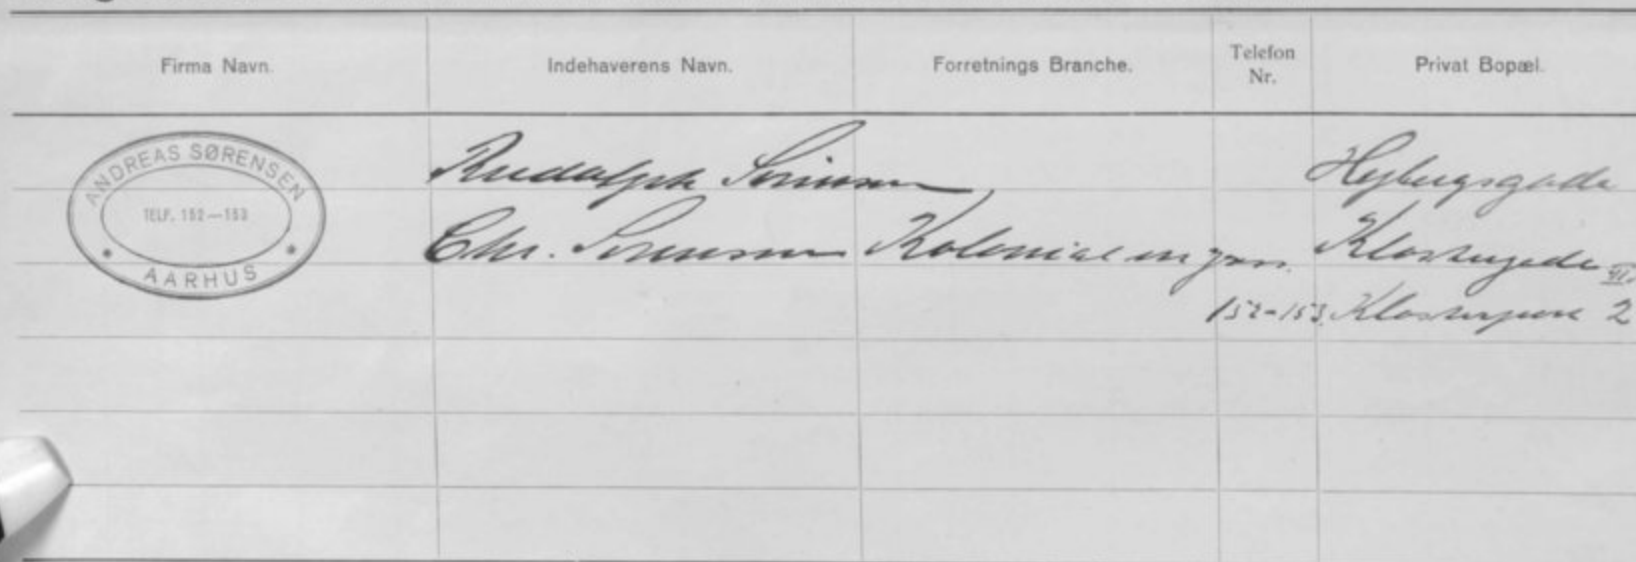 Firma Navn. Indehaverens Navn. Forretnings Branche. Telefon Nr. Privat Bopæl.
ANDREAS SØRENSEN
TELF. 152—153
AARHUS
Rudolph Sørensen
Chr. Sørensen Kolonial en gros. Klostergade
152-153. 2